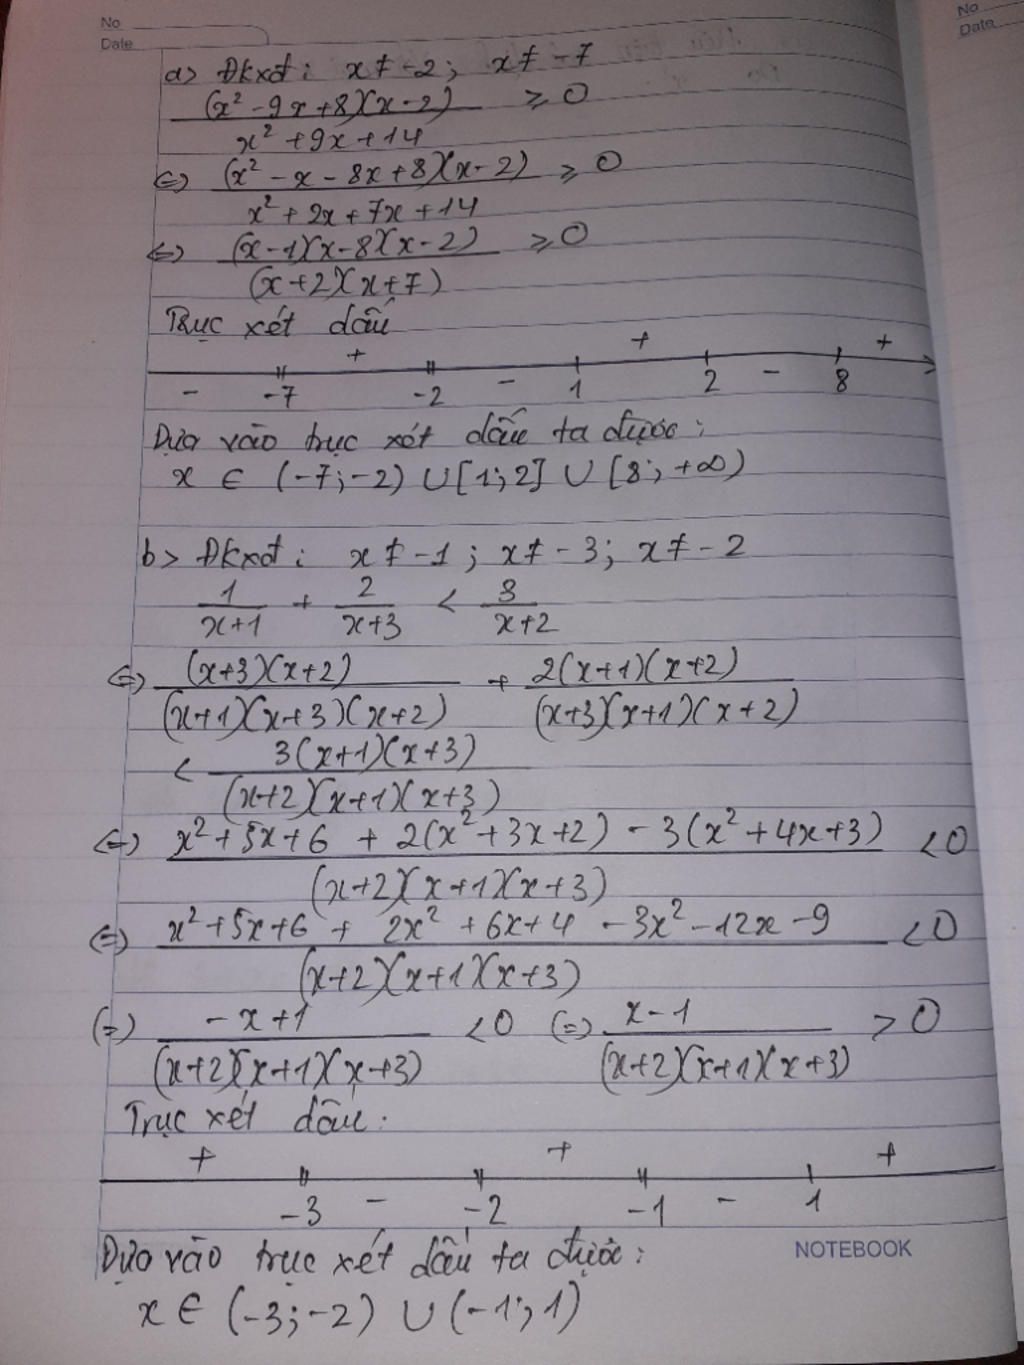 No
Date
No
Date
a) Đkxđ: x ≠ -2; x ≠ -7
(x² - 9x + 8)(x - 2) ≥ 0
x² + 9x + 14
(=) (x² - x - 8x + 8)(x - 2) ≥ 0
x² + 2x + 7x + 14
(=) (x - 1)(x - 8)(x - 2) ≥ 0
(x + 2)(x + 7)
Trục xét dấu
+ + +
- -7 -2 - 1 2 - 8
Dựa vào trục xét dấu ta được:
x ∈ (-7; -2) ∪ [1; 2] ∪ [8; +∞)
b> Đkxđ: x ≠ -1; x ≠ -3; x ≠ -2
1/(x+1) + 2/(x+3) < 3/(x+2)
(=) (x+3)(x+2) + 2(x+1)(x+2)
(x+1)(x+3)(x+2) (x+3)(x+1)(x+2)
< 3(x+1)(x+3)
(x+2)(x+1)(x+3)
(=) x² + 5x + 6 + 2(x² + 3x + 2) - 3(x² + 4x + 3) < 0
(x+2)(x+1)(x+3)
(=) x² + 5x + 6 + 2x² + 6x + 4 - 3x² - 12x - 9 < 0
(x+2)(x+1)(x+3)
(=) -x + 1 < 0 (=) x - 1 > 0
(x+2)(x+1)(x+3) (x+2)(x+1)(x+3)
Trục xét dấu:
+ + +
-3 - -2 -1 - 1
Dựa vào trục xét dấu ta được:
x ∈ (-3; -2) ∪ (-1; 1)
NOTEBOOK